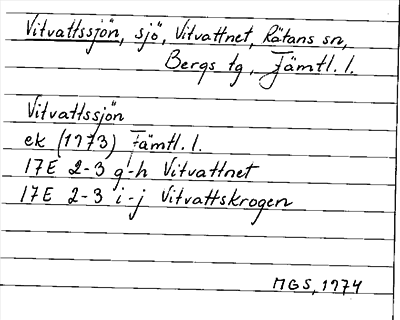 Vitvattssjön, sjö, Vitvattnet, Rätans sn,
Bergs tg, Jämtl. l.
Vitvattssjön
ek (1973) Jämtl. l.
17E 2-3 g-h Vitvattnet
17E 2-3 i-j Vitvattskrogen
MGS, 1974